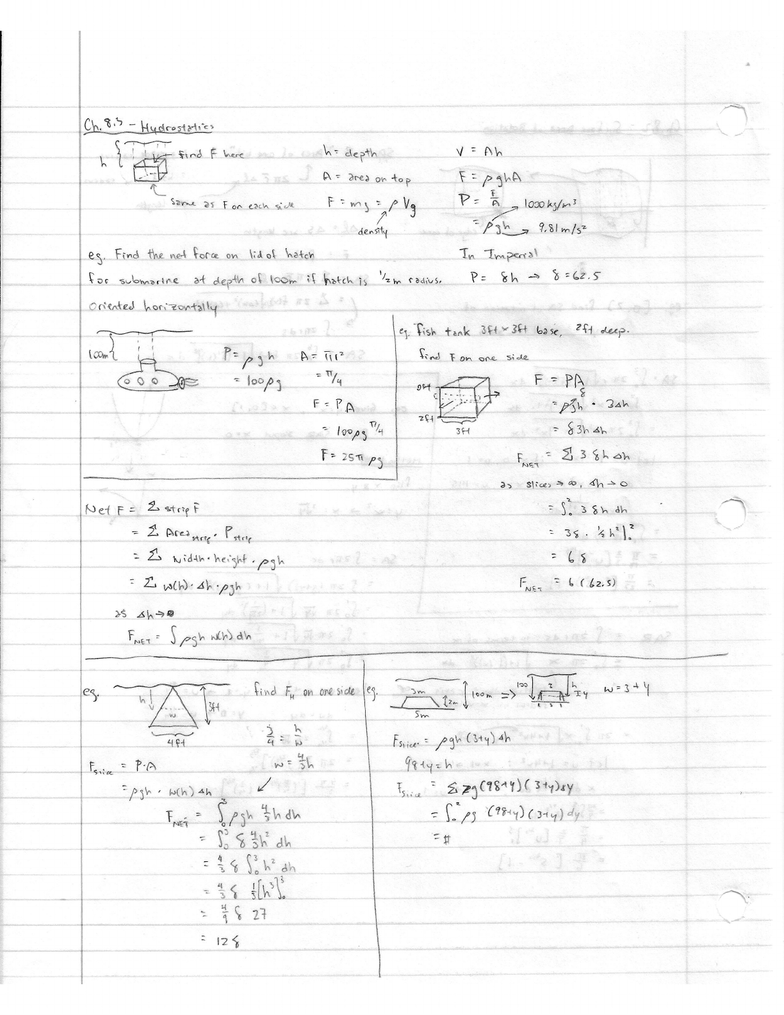 Ch. 8.5 - Hydrostatics
h
find F here
same as F on each side
h = depth
A = area on top
F = mg = ρVg
density
V = Ah
F = ρghA
P = F/A
= ρgh
1000 kg/m³
9.81 m/s²
In Imperial
P = δh → δ = 62.5
eg. Find the net force on lid of hatch
for submarine at depth of 100m if hatch is 1/2 m radius.
oriented horizontally
100m
P = ρgh
= 100ρg
A = πr²
= π/4
F = PA
= 100ρg π/4
F = 25π ρg
eg. fish tank 3ft × 3ft base, 2ft deep.
find F on one side
0ft
2ft
3ft
F = PA
= ρgh · 3Δh
δ
= δ3hΔh
F_NET = Σ 3δhΔh
as slices → ∞, Δh → 0
= ∫₀² 3δh dh
= 3δ · ½h²|₀²
= 6δ
F_NET = 6(62.5)
Net F = Σ strip F
= Σ Area strip · P strip
= Σ width · height · ρgh
= Σ w(h) · Δh · ρgh
as Δh → 0
F_NET = ∫ρgh w(h) dh
eg.
h
w
3ft
4ft
find F_H on one side
3/4 = h/w
w = 4/3 h
F_slice = P·A
= ρgh · w(h) Δh
F_NET = ∫₀³ ρgh 4/3 h dh
= ∫₀³ δ 4/3 h² dh
= 4/3 δ ∫₀³ h² dh
= 4/3 δ 1/3 [h³]₀³
= 4/9 δ 27
= 12δ
eg.
3m
5m
2m
100m ⇒
100
h
y
w = 3 + y
F_slice = ρgh (3+y) Δh
98+y = h
F_slice = Σ ρg (98+y)(3+y) Δy
= ∫₀² ρg (98+y)(3+y) dy
= #